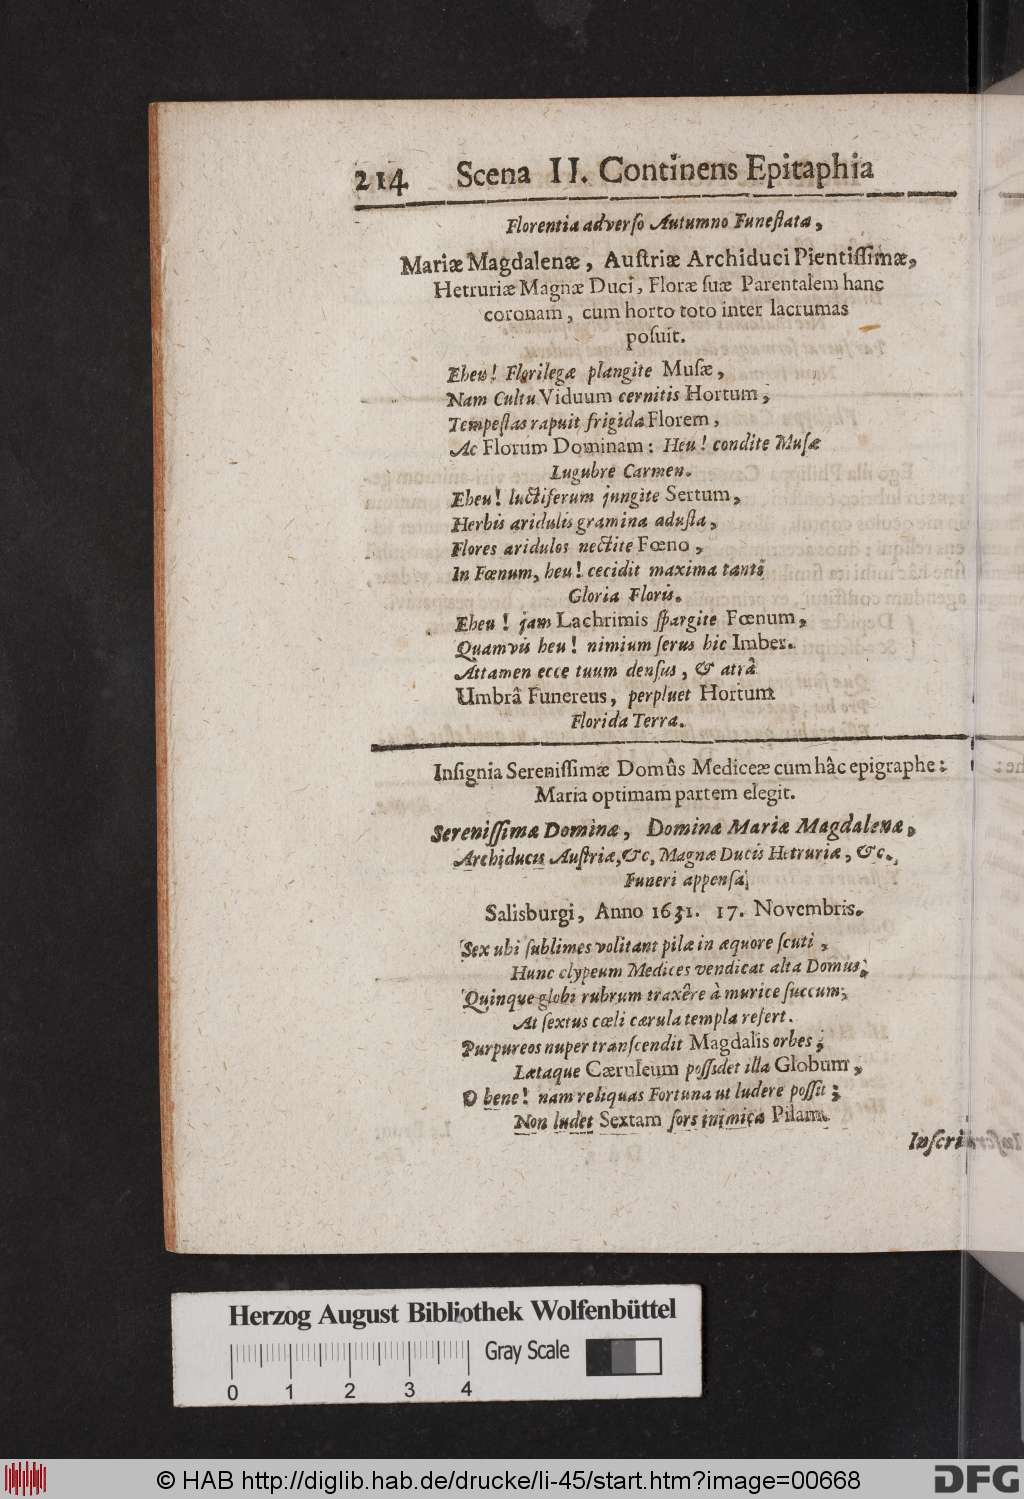 214 Scena II. Continens Epitaphia
Florentia adverſo Autumno Funeſtata,
Mariæ Magdalenæ, Auſtriæ Archiduci Pientiſſimæ,
Hetruriæ Magnæ Duci, Floræ ſuæ Parentalem hanc
coronam, cum horto toto inter lacrumas
poſuit.
Eheu! Florilegæ plangite Muſæ,
Nam Cultu Viduum cernitis Hortum,
Tempeſtas rapuit frigida Florem,
Ac Florum Dominam: Heu! condite Muſæ
Lugubre Carmen.
Eheu! luctiferum jungite Sertum,
Herbis aridulis gramina aduſta,
Flores aridulos nectite Fœno,
In Fœnum, heu! cecidit maxima tanti
Gloria Floris.
Eheu! jam Lachrimis ſpargite Fœnum,
Quamvis heu! nimium ſerus hic Imber.
Attamen ecce tuum denſus, & atrâ
Umbrâ Funereus, perpluet Hortum
Florida Terra.
Inſignia Sereniſſimæ Domûs Mediceæ cum hâc epigraphe:
Maria optimam partem elegit.
Sereniſſimæ Dominæ, Dominæ Mariæ Magdalenæ,
Archiducis Auſtriæ, &c, Magnæ Ducis Hetruriæ, &c.,
Funeri appenſa,
Salisburgi, Anno 1631. 17. Novembris.
Sex ubi ſublimes volitant pilæ in æquore ſcuti,
Hunc clypeum Medices vendicat alta Domus;
Quinque globi rubrum traxêre à murice ſuccum;
At ſextus cœli cærula templa refert.
Purpureos nuper tranſcendit Magdalis orbes;
Lætaque Cæruleum poſſidet illa Globum,
O bene! nam reliquas Fortuna ut ludere poſſit;
Non ludet Sextam ſors inimica Pilam.
Inſcri-
Herzog August Bibliothek Wolfenbüttel
Gray Scale
0 1 2 3 4
© HAB http://diglib.hab.de/drucke/li-45/start.htm?image=00668
DFG